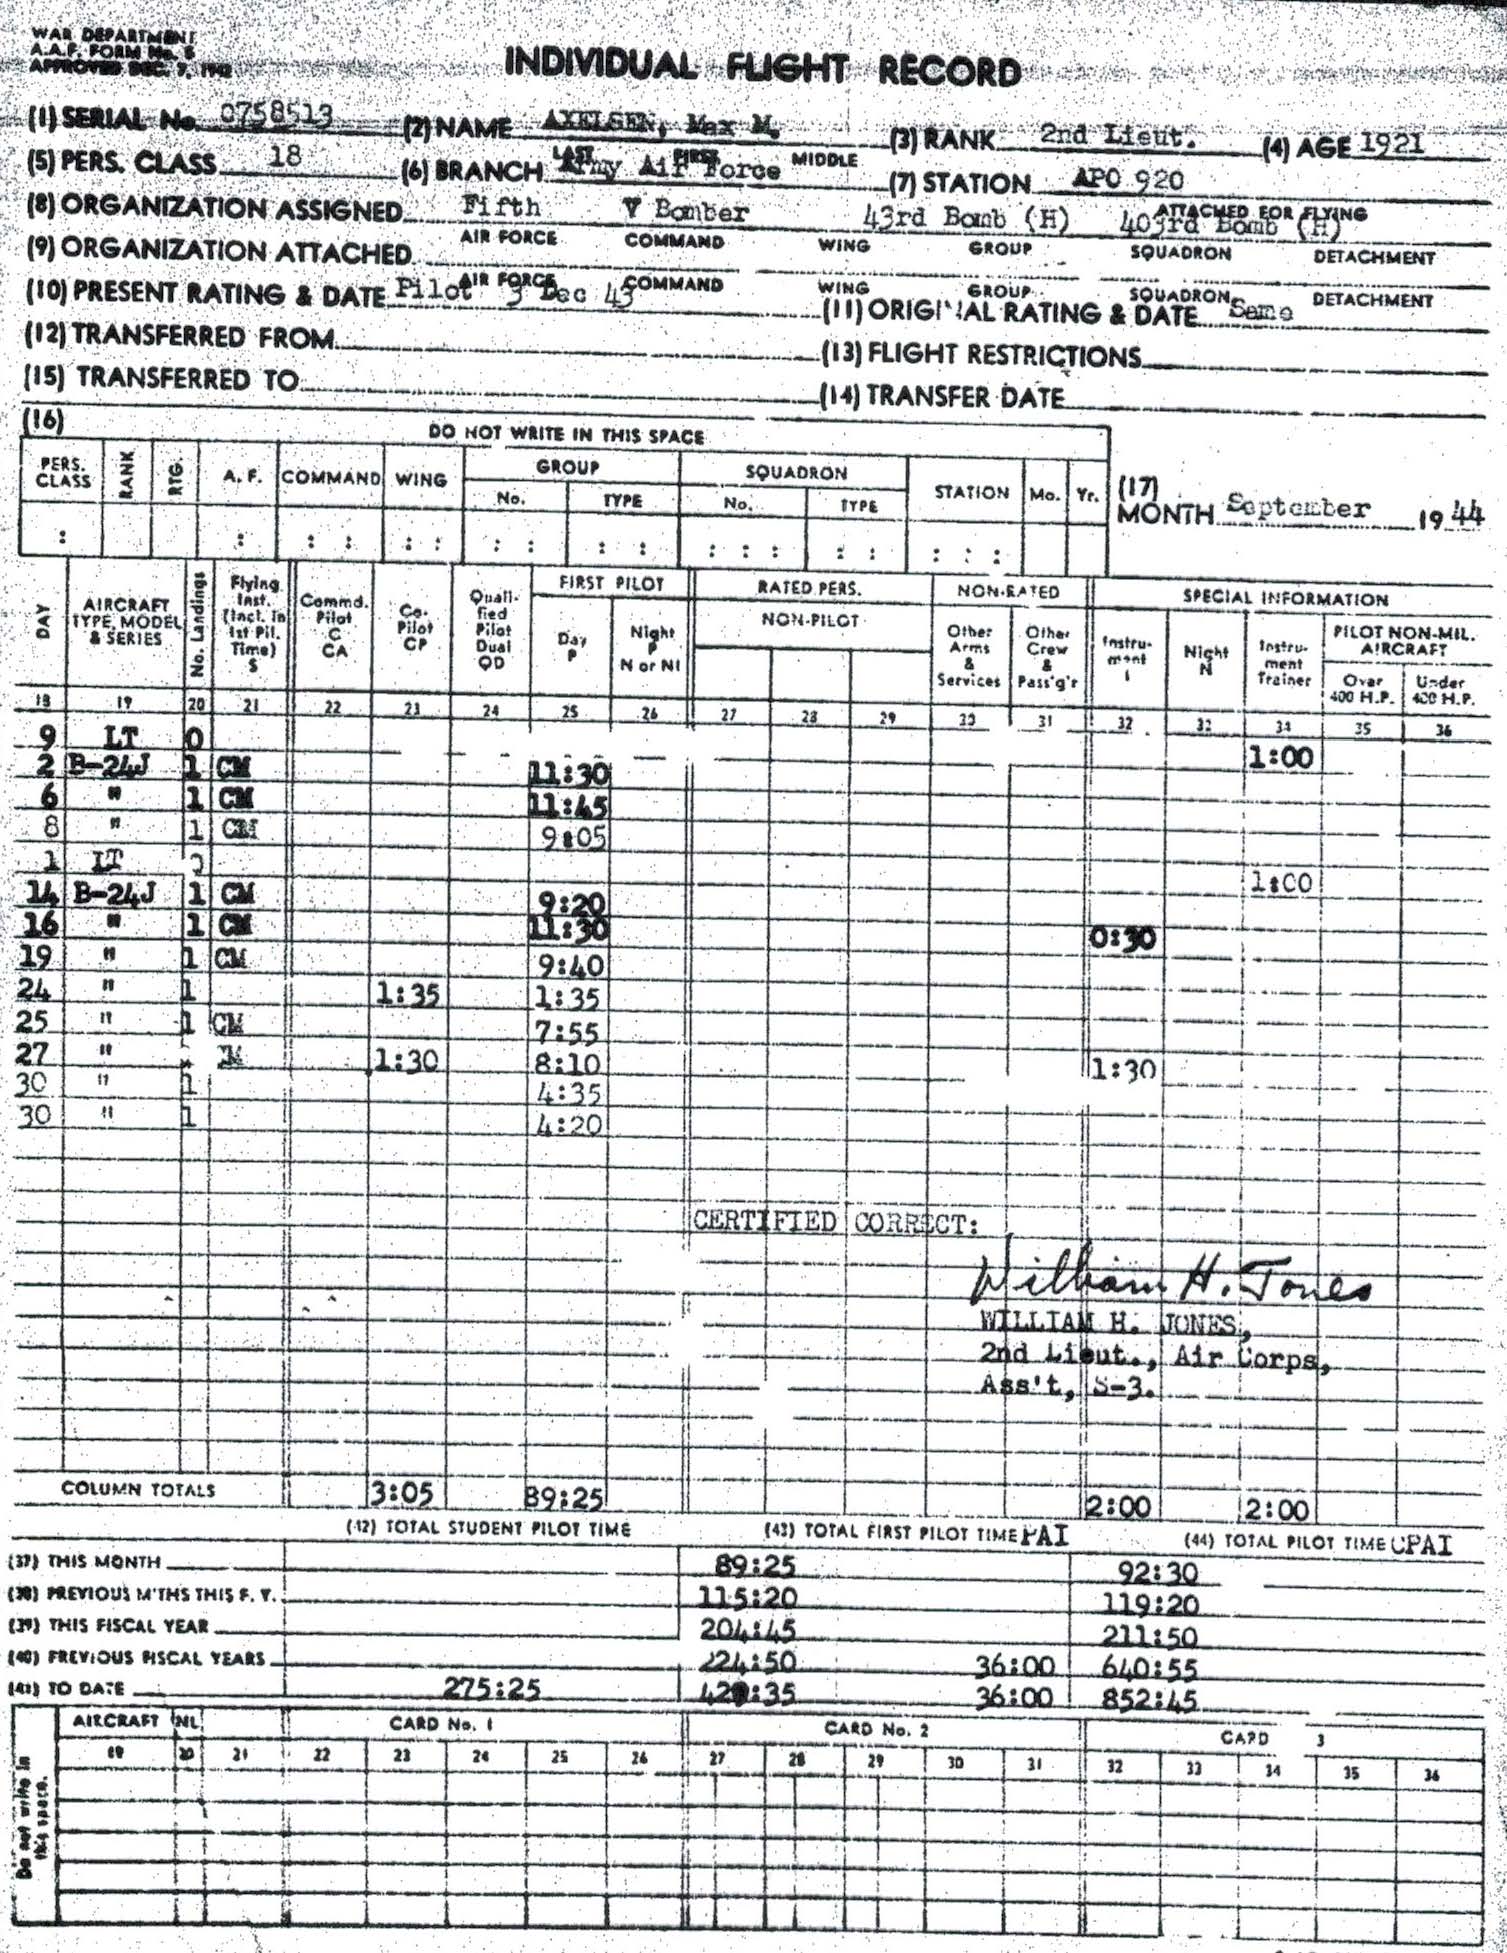 WAR DEPARTMENT
A.A.F. FORM No. 5
APPROVED DEC. 7, 1942
INDIVIDUAL FLIGHT RECORD
(1) SERIAL No. 0758513 (2) NAME AXELSEN, Max M. (3) RANK 2nd Lieut. (4) AGE 1921
LAST FIRST MIDDLE
(5) PERS. CLASS 18 (6) BRANCH Army Air Force (7) STATION APO 920
(8) ORGANIZATION ASSIGNED Fifth V Bomber 43rd Bomb (H) 403rd Bomb (H) ATTACHED FOR FLYING
AIR FORCE COMMAND WING GROUP SQUADRON DETACHMENT
(9) ORGANIZATION ATTACHED
AIR FORCE COMMAND WING GROUP SQUADRON DETACHMENT
(10) PRESENT RATING & DATE Pilot 3 Dec 43 (11) ORIGINAL RATING & DATE Same
(12) TRANSFERRED FROM (13) FLIGHT RESTRICTIONS
(15) TRANSFERRED TO (14) TRANSFER DATE
(16) DO NOT WRITE IN THIS SPACE
PERS. CLASS RANK RTG. A. F. COMMAND WING GROUP No. TYPE SQUADRON No. TYPE STATION Mo. Yr.
(17) MONTH September 1944
DAY AIRCRAFT TYPE, MODEL & SERIES No. Landings Flying Inst. (Incl. in 1st Pil. Time) S Commd. Pilot C CA Co-Pilot CP Quali-fied Pilot Dual QD FIRST PILOT Day P Night P N or NI RATED PERS. NON-PILOT NON-RATED Other Arms & Services Other Crew & Pass'g'r SPECIAL INFORMATION Instru-ment I Night N Instru-ment Trainer PILOT NON-MIL. AIRCRAFT Over 400 H.P. Under 400 H.P.
18 19 20 21 22 23 24 25 26 27 28 29 30 31 32 33 34 35 36
9 LT 0 1:00
2 B-24J 1 CM 11:30
6 " 1 CM 11:45
8 " 1 CM 9:05
1 LT 0 1:00
14 B-24J 1 CM 9:20
16 " 1 CM 11:30 0:30
19 " 1 CM 9:40
24 " 1 1:35 1:35
25 " 1 CM 7:55
27 " 1:30 8:10 1:30
30 " 1 4:35
30 " 1 4:20
CERTIFIED CORRECT:
William H. Jones
WILLIAM H. JONES,
2nd Lieut., Air Corps,
Ass't, S-3.
COLUMN TOTALS 3:05 89:25 2:00 2:00
(42) TOTAL STUDENT PILOT TIME (43) TOTAL FIRST PILOT TIME PAI (44) TOTAL PILOT TIME CPAI
(37) THIS MONTH 89:25 92:30
(38) PREVIOUS M'THS THIS F. Y. 115:20 119:20
(39) THIS FISCAL YEAR 204:45 211:50
(40) PREVIOUS FISCAL YEARS 224:50 36:00 640:55
(41) TO DATE 275:25 429:35 36:00 852:45
Do not write in this space.
AIRCRAFT NL CARD No. 1 CARD No. 2 CARD 3
19 20 21 22 23 24 25 26 27 28 29 30 31 32 33 34 35 36